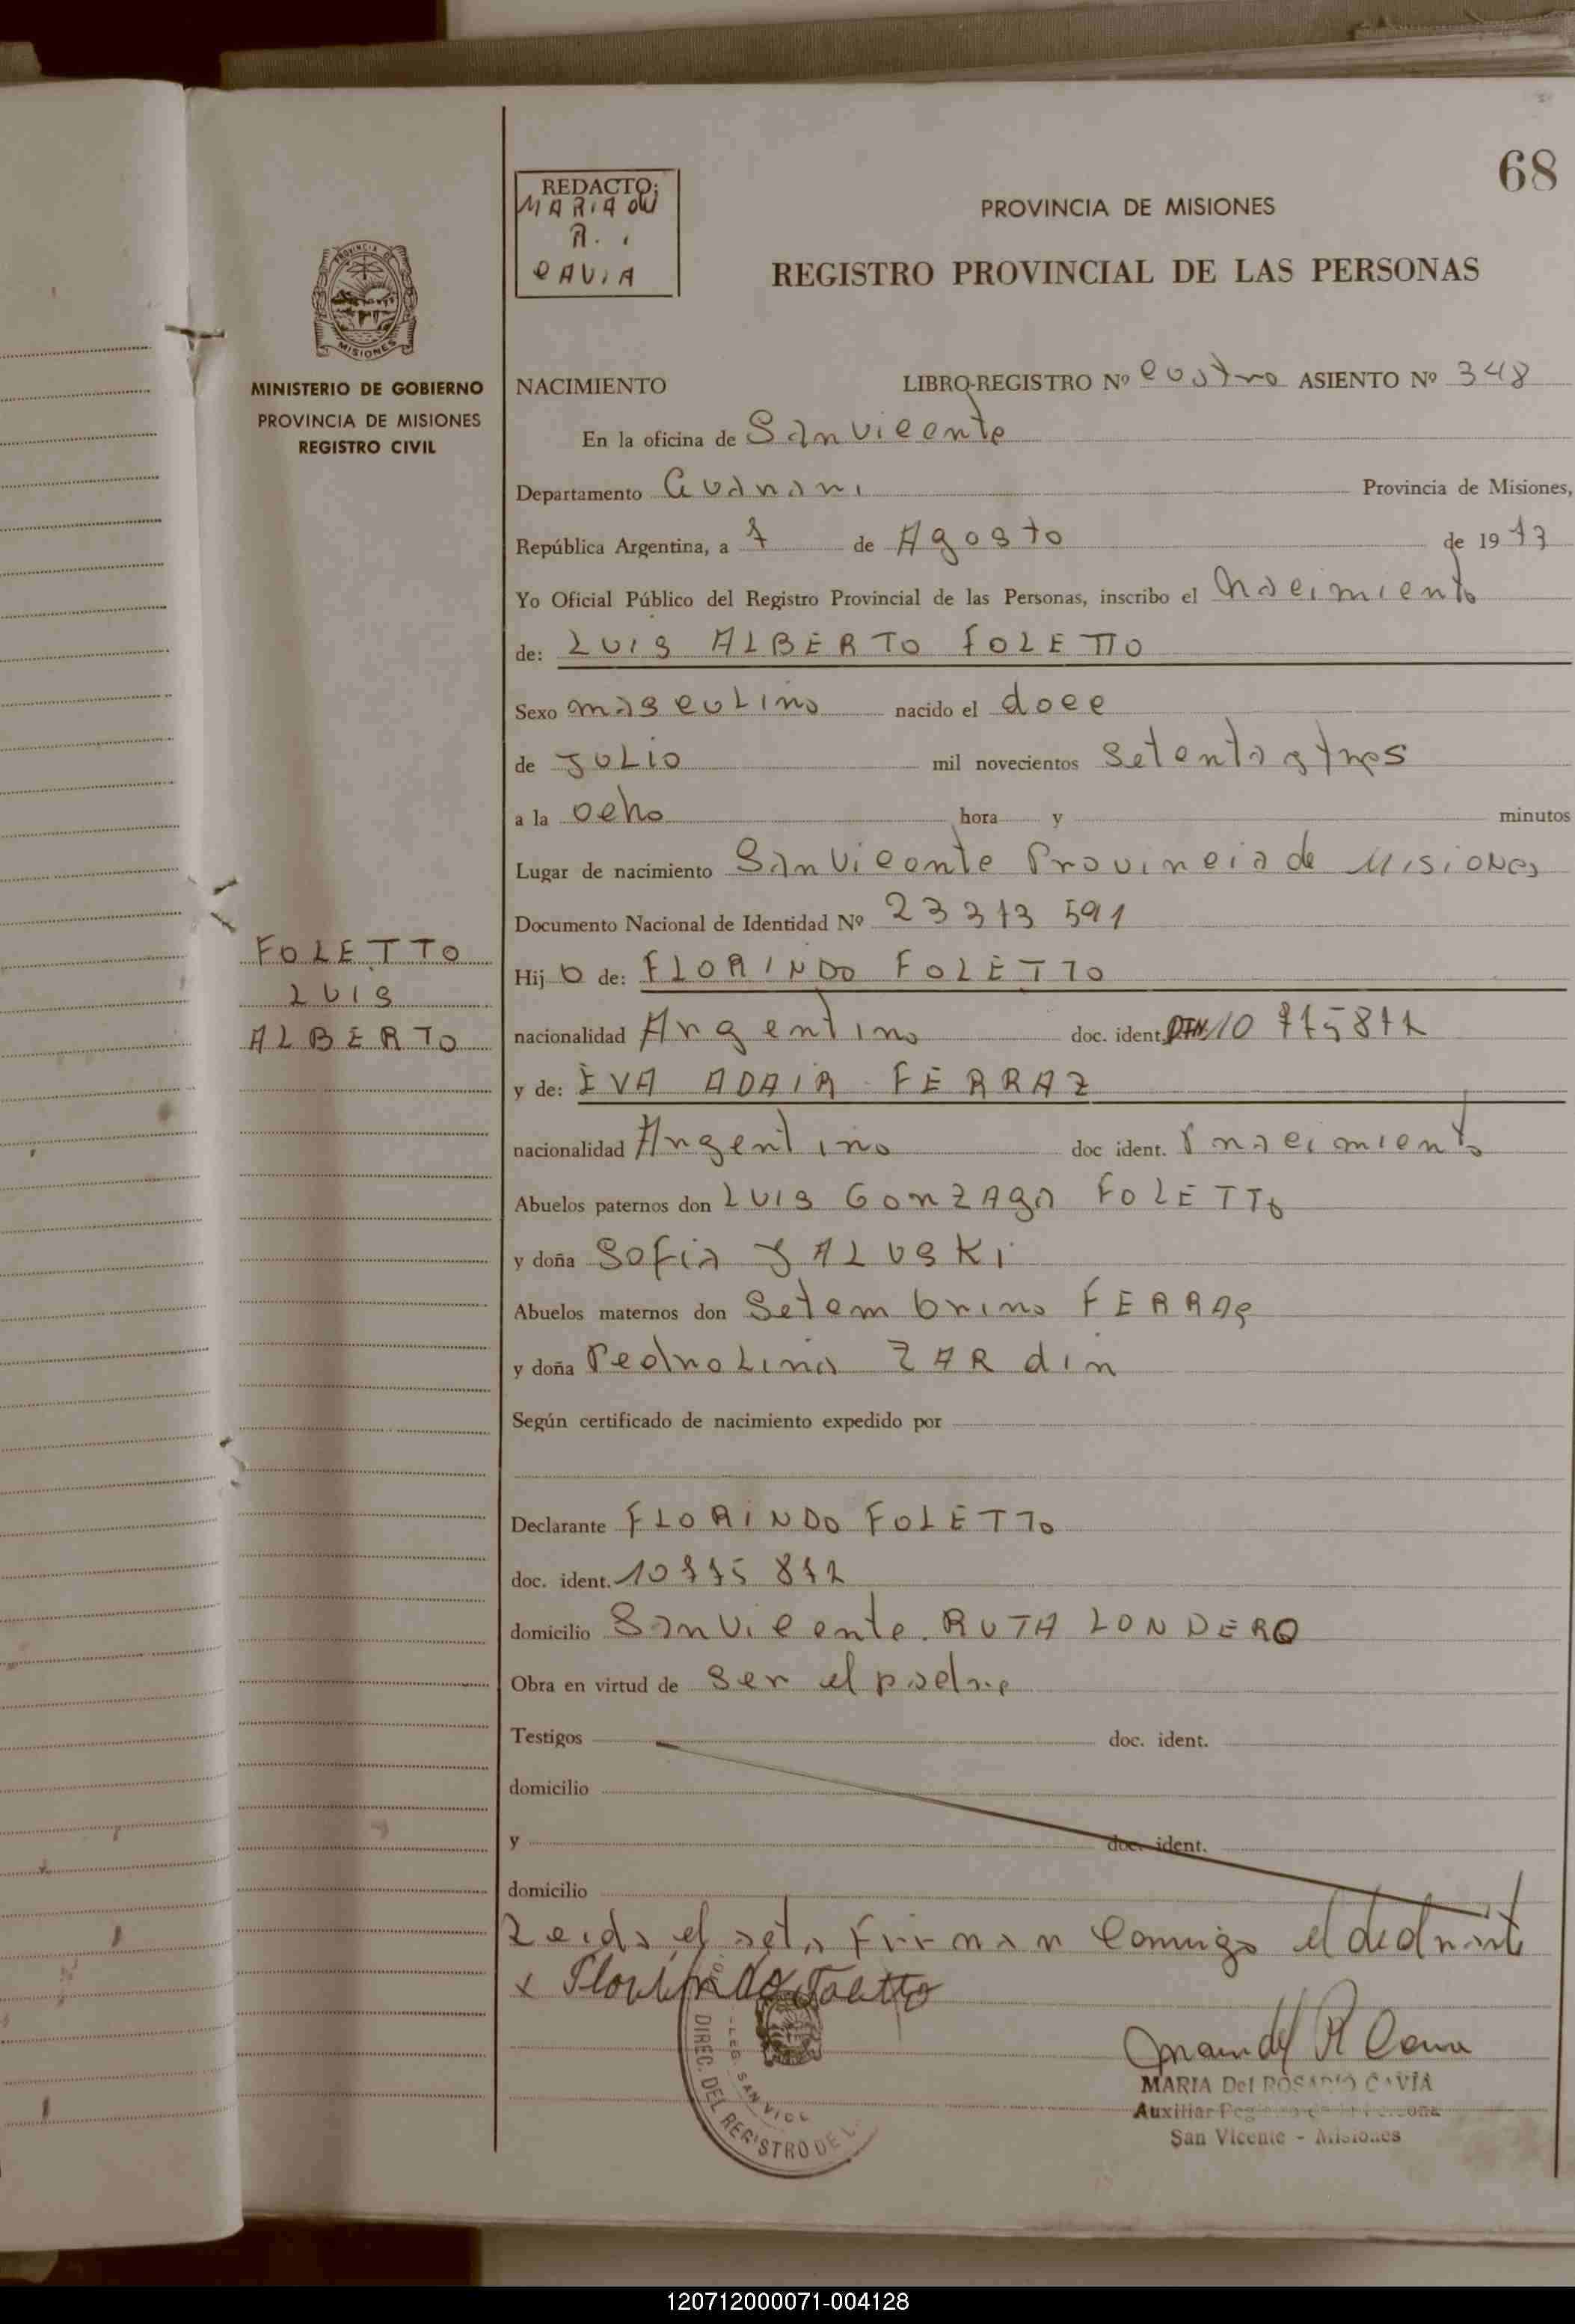 68
REDACTO:
MARIA DEL
R.
CAVIA
PROVINCIA DE MISIONES
REGISTRO PROVINCIAL DE LAS PERSONAS
PROVINCIA DE
MISIONES
MINISTERIO DE GOBIERNO
PROVINCIA DE MISIONES
REGISTRO CIVIL
FOLETTO
LUIS
ALBERTO
NACIMIENTO LIBRO-REGISTRO Nº cuatro ASIENTO Nº 348
En la oficina de San Vicente
Departamento Guarani Provincia de Misiones,
República Argentina, a 7 de Agosto de 1973
Yo Oficial Público del Registro Provincial de las Personas, inscribo el Nacimiento
de: LUIS ALBERTO FOLETTO
Sexo masculino nacido el doce
de JULIO mil novecientos setenta y tres
a la ocho hora y minutos
Lugar de nacimiento San Vicente Provincia de Misiones
Documento Nacional de Identidad Nº 23 373 591
Hijo de: FLORINDO FOLETTO
nacionalidad Argentino doc. ident. 10 775 872
y de: EVA ADAIR FERRAZ
nacionalidad Argentina doc ident. P nacimiento
Abuelos paternos don LUIS GONZAGA FOLETTO
y doña Sofia JALUSKI
Abuelos maternos don Setembrino FERRAS
y doña Pedrolina ZARdin
Según certificado de nacimiento expedido por
Declarante FLORINDO FOLETTO
doc. ident. 10775 872
domicilio San Vicente. RUTA LONDERO
Obra en virtud de ser el padre
Testigos doc. ident.
domicilio
y doc. ident.
domicilio
Leida el acta Firman Conmigo el declarante
x Florindo Foletto
DIREC. DEL REGISTRO DE L
SAN VICE
MARIA Del ROSARIO CAVIA
Auxiliar
San Vicente - Misiones
120712000071-004128